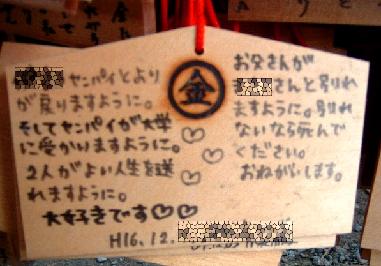 ヤンパイとより
が戻りますように。
そしてヤンパイが大学
に受かりますように。
2人がよい人生を送
れますように。
大好きです♡♡
金
お父さんが
さんと別れ
ますように。別れ
ないなら死んで
ください。
おねがいします。
H16.12.